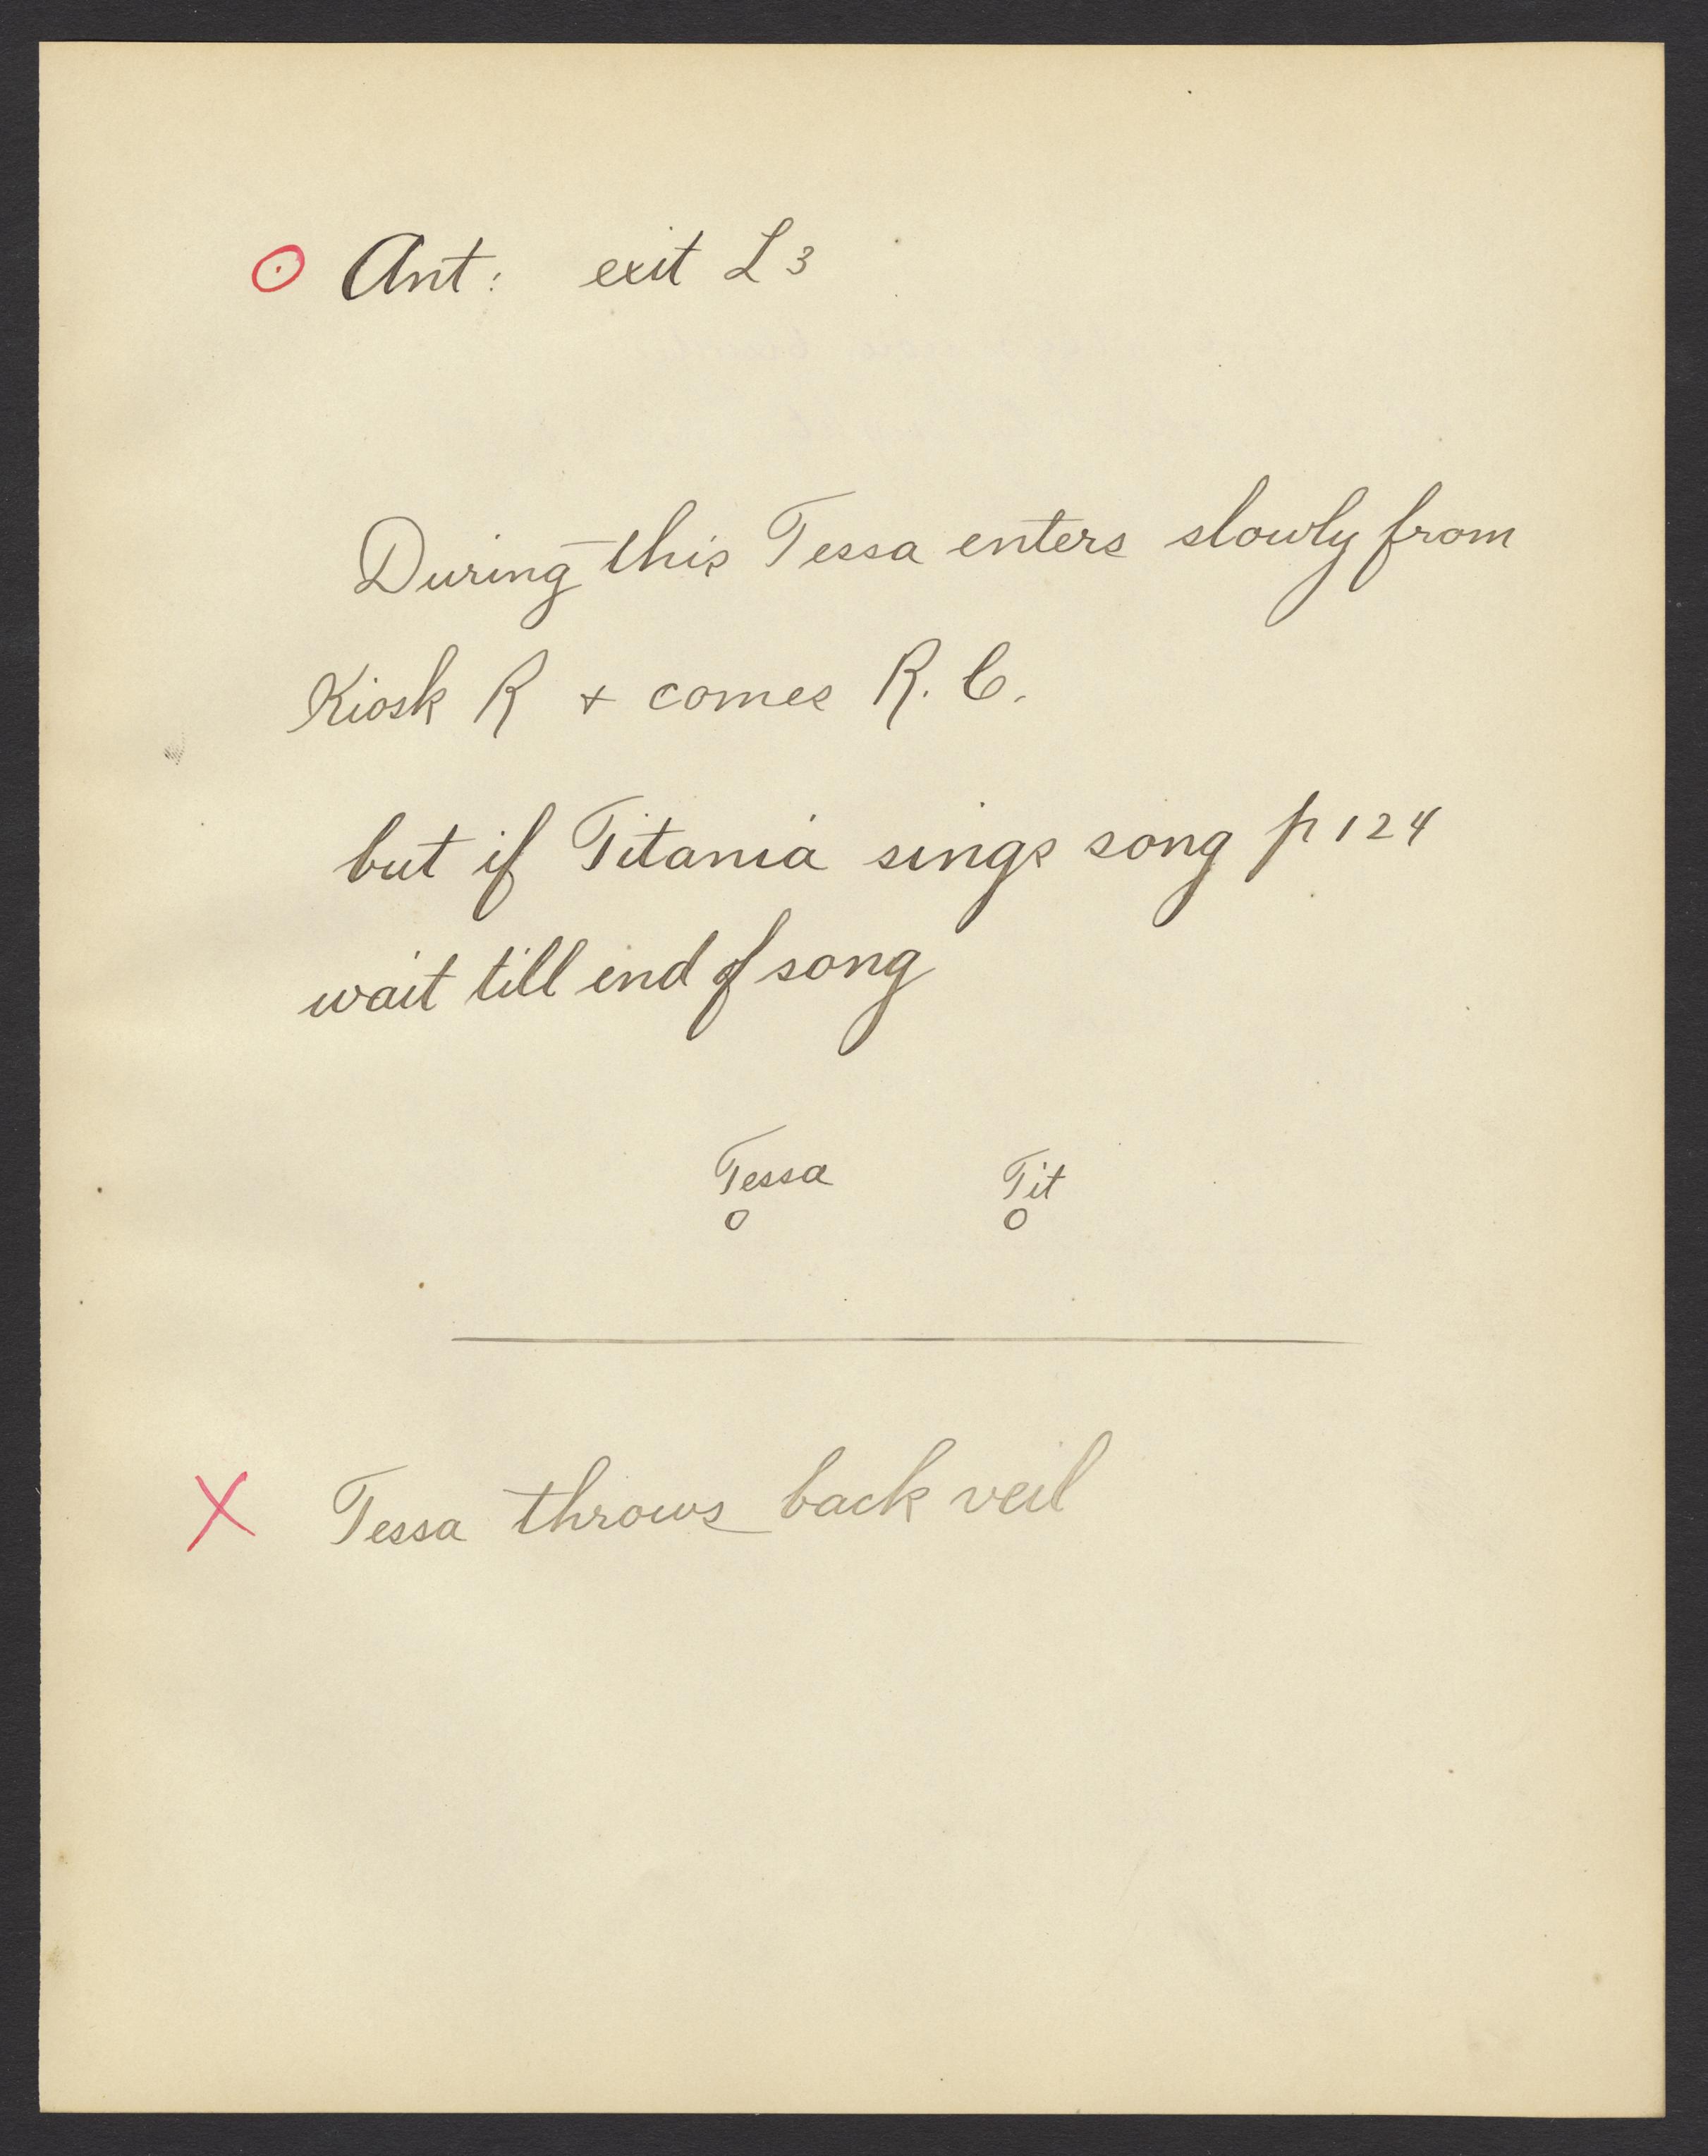 Ant: exit L 3
During this Tessa enters slowly from
Kiosk R + comes R. C.
but if Titania sings song p 124
wait till end of song
Tessa Tit
o o
X Tessa throws back veil